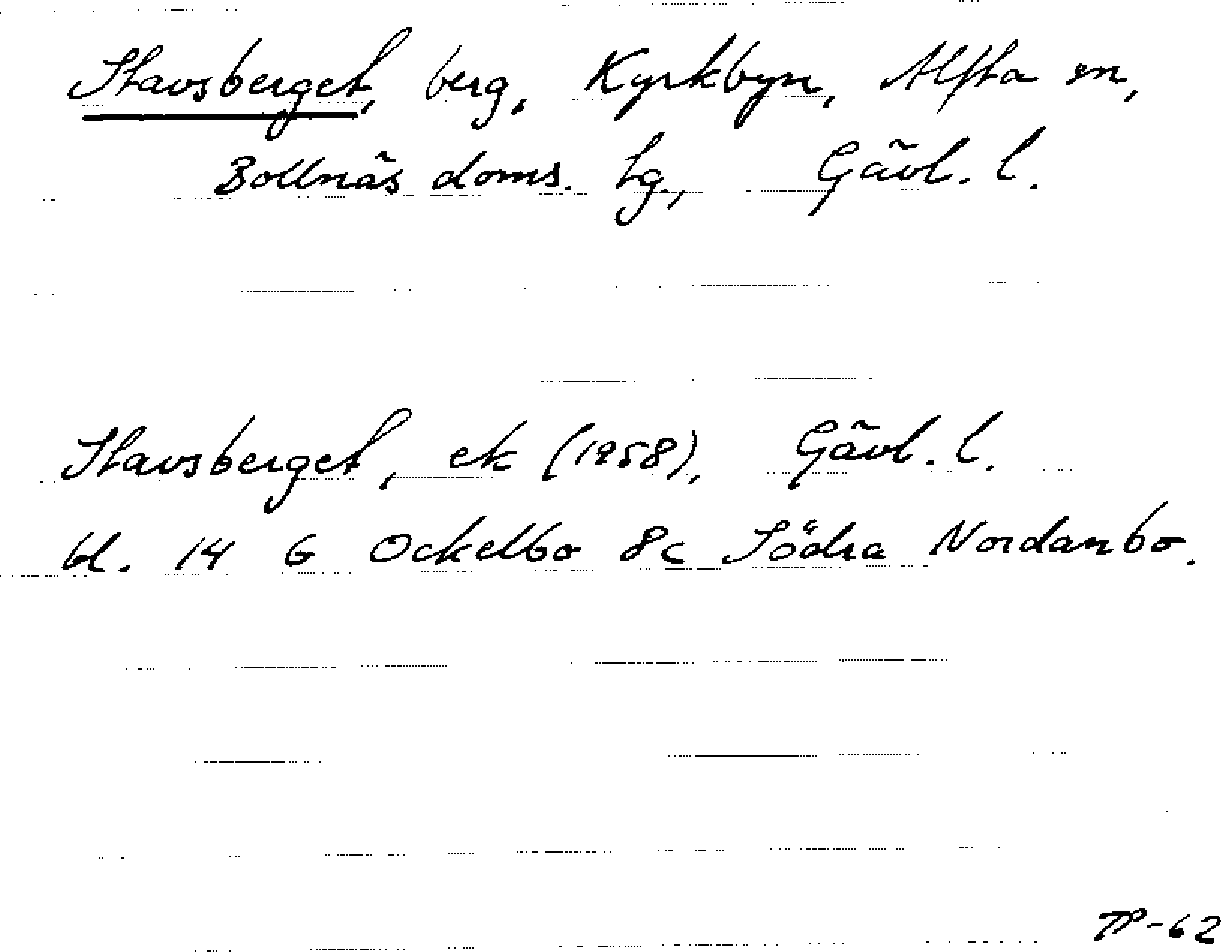 Stavsberget, berg, Kyrkbyn, Alfta sn,
Bollnäs doms. hg, Gävl. l.
Stavsberget, ek (1958), Gävl. l.
bl. 14 G Ockelbo 8c Södra Nordanbo.
TP-62